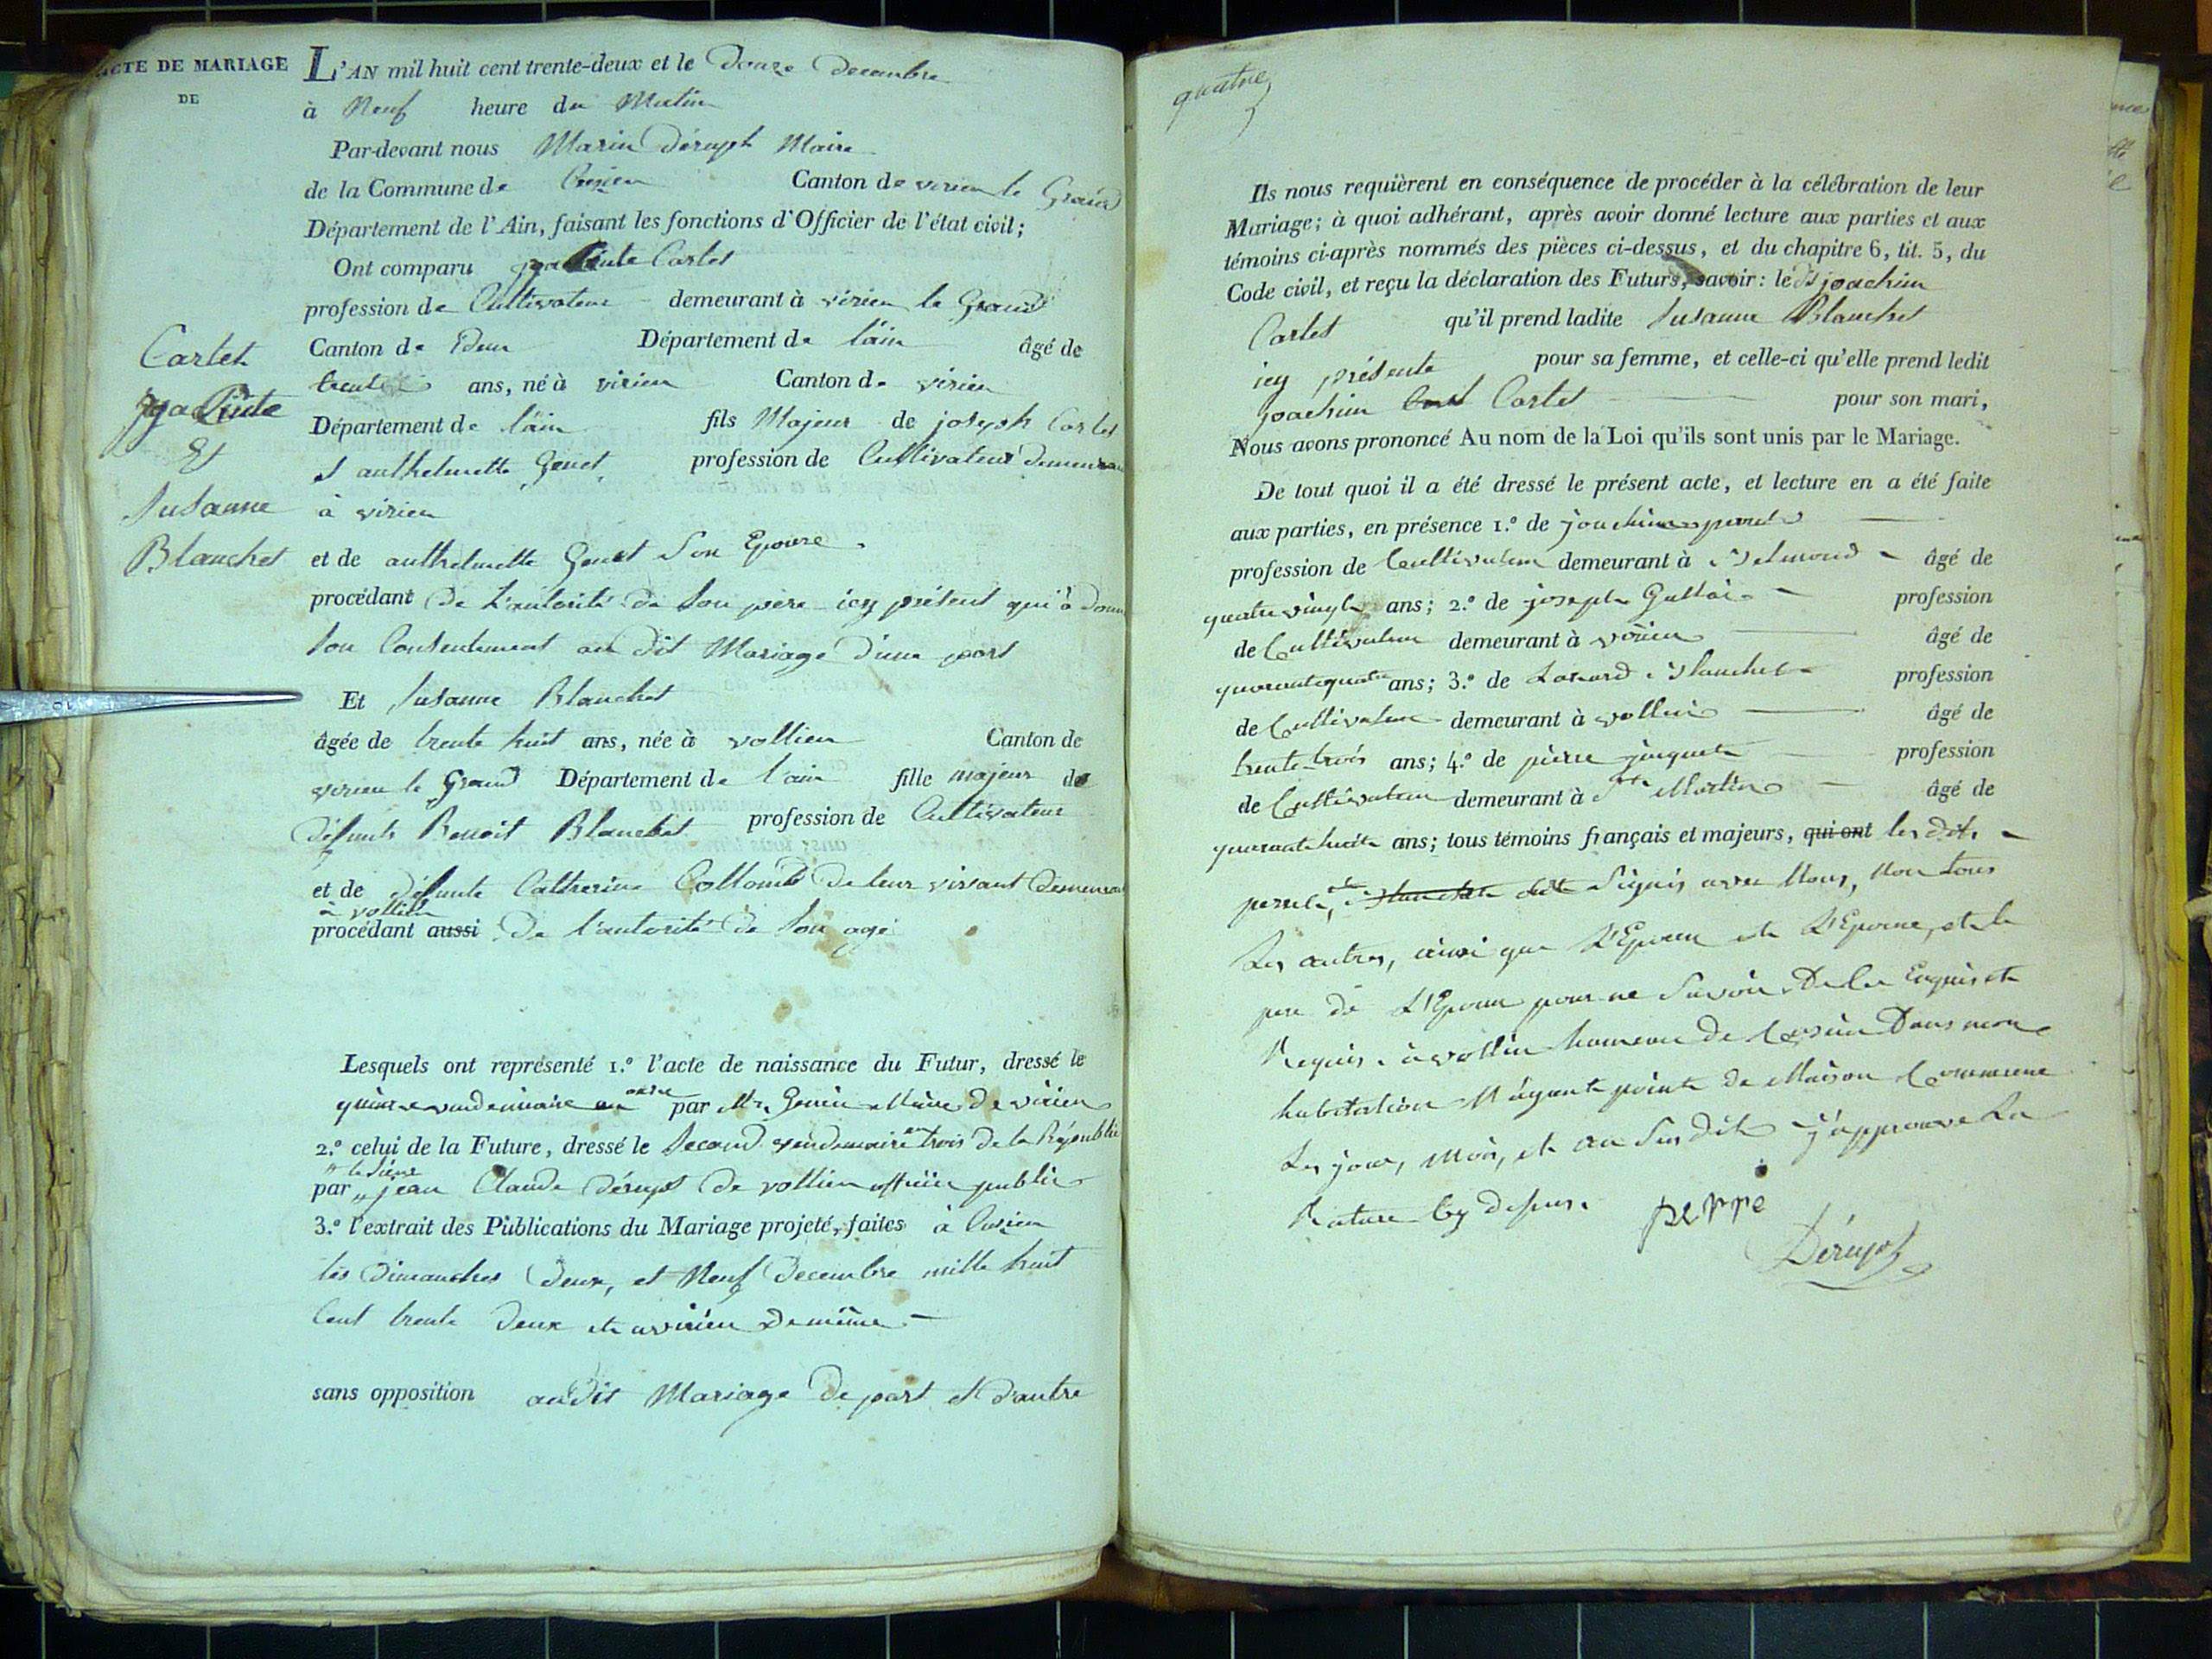 ACTE DE MARIAGE
DE
Cartet
Et
Susanne
Blanchet
L'AN mil huit cent trente-deux et le Douze Decembre
à Neuf heure du Matin
Par-devant nous Marin Dérupt Maire
de la Commune de Cuzieu Canton de virieu le Grand
Département de l'Ain, faisant les fonctions d'Officier de l'état civil;
Ont comparu Cartet
profession de Cultivateur demeurant à virieu le Grand
Canton de Idem Département de l'ain âgé de
trente ans, né à virieu Canton de virieu
Département de l'ain fils Majeur de joseph Cartet
et anthelmette Genet profession de Cultivateur demeurant
à virieu
et de anthelmette Genet Son Epouse.
procédant De L'autorité de Son père icy présent qui à donné
Son Consentement au dit Mariage d'une part
Et Susanne Blanchet
âgée de trente huit ans, née à vollien Canton de
virieu le Grand Département de l'ain fille majeur de
défunts Benoit Blanchet profession de Cultivateur
et de défunte Catherine Collomb De leur vivant Demeurant
à vollien
procédant aussi De l'autorité de Son age
Lesquels ont représenté 1.º l'acte de naissance du Futur, dressé le
quinze vendemiaire an onze par Mr. Genin Maire De virieu
2.º celui de la Future, dressé le Second vendemaire an trois de la Républic
par le Sieur jean Claude Dérupt De vollien officier public
3.º l'extrait des Publications du Mariage projeté, faites à Cuzieu
les Dimanches Deux, et Neuf Decembre mille huit
Cent trente Deux et a virieu De même
sans opposition audit Mariage De part et d'autre
quatre
Ils nous requièrent en conséquence de procéder à la célébration de leur
Mariage; à quoi adhérant, après avoir donné lecture aux parties et aux
témoins ci-après nommés des pièces ci-dessus, et du chapitre 6, tit. 5, du
Code civil, et reçu la déclaration des Futurs, savoir: le dt joachim
Cartet qu'il prend ladite Susanne Blanchet
icy présente pour sa femme, et celle-ci qu'elle prend ledit
joachim Cartet pour son mari,
Nous avons prononcé Au nom de la Loi qu'ils sont unis par le Mariage.
De tout quoi il a été dressé le présent acte, et lecture en a été faite
aux parties, en présence 1.º de joachim
profession de Cultivateur demeurant à Belmond âgé de
quatre vingt ans; 2.º de joseph profession
de Cultivateur demeurant à virieu âgé de
quarante quatre ans; 3.º de Blanchet profession
de Cultivateur demeurant à vollien âgé de
trente trois ans; 4.º de pierre profession
de Cultivateur demeurant à St Martin âgé de
quarante huit ans; tous témoins français et majeurs, qui ont les dits
Signés avec Nous, Non tous
Les autres, ainsi que L'Epoux et L'Epouse, et le
pere de L'Epoux pour ne Savoir De Ce Enquis et
Requis. à vollien hameau de Cuzieu Dans mon
habitation N'ayant point de Maison Commune
Les jour, Mois, et an Sus dits j'approuve La
Rature Cy dessus. perre
Dérupt